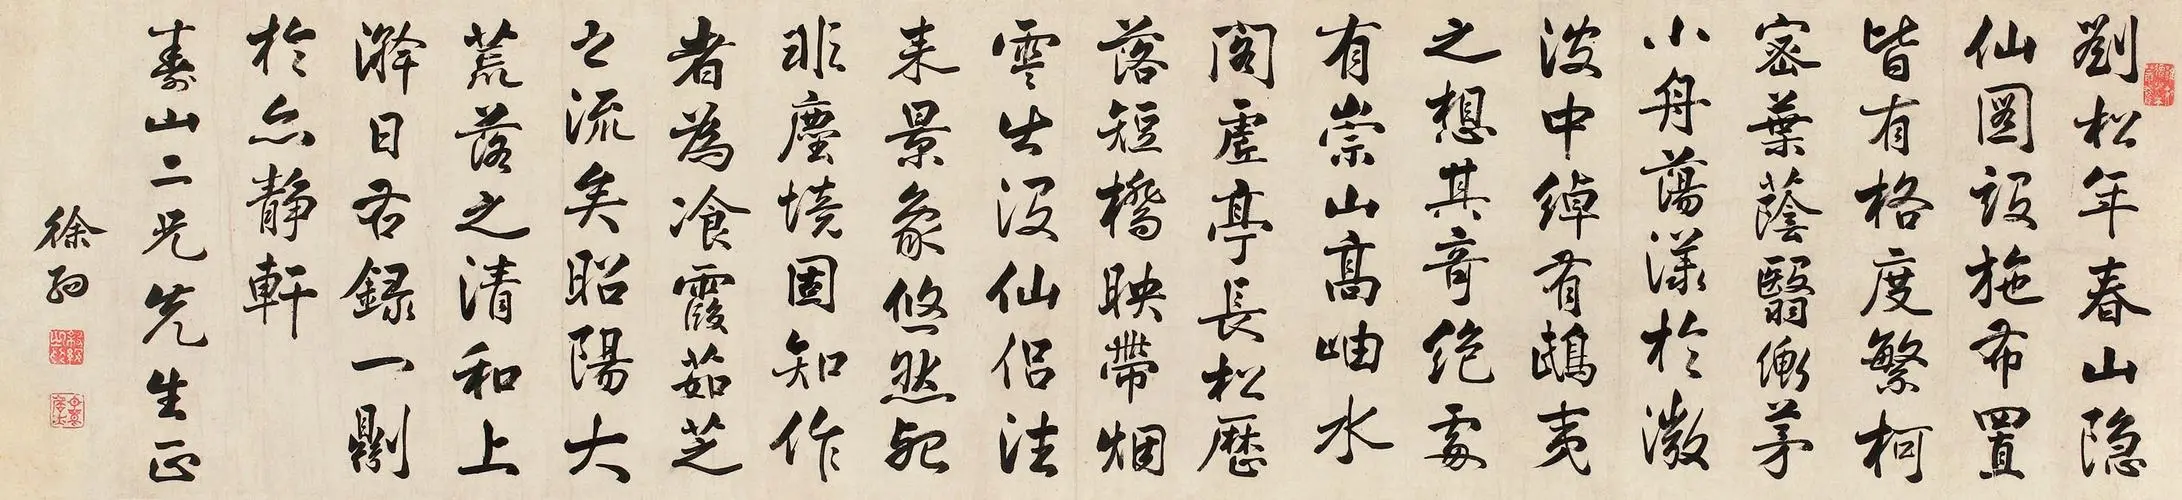 劉松年春山隐
仙图設施布置
皆有格度繁柯
密葉蔭翳衡茅
小舟蕩漾於激
波中綽有鴟夷
之想其奇绝處
有崇山高岫水
阁虚亭長松歴
落短橋映帶烟
雲出没仙侣往
来景象悠然絶
非塵境固知作
者為飡霞茹芝
之流矣昭陽大
荒落之清和上
澣日右録一則
於亦静軒
壽山二兄先生正
徐